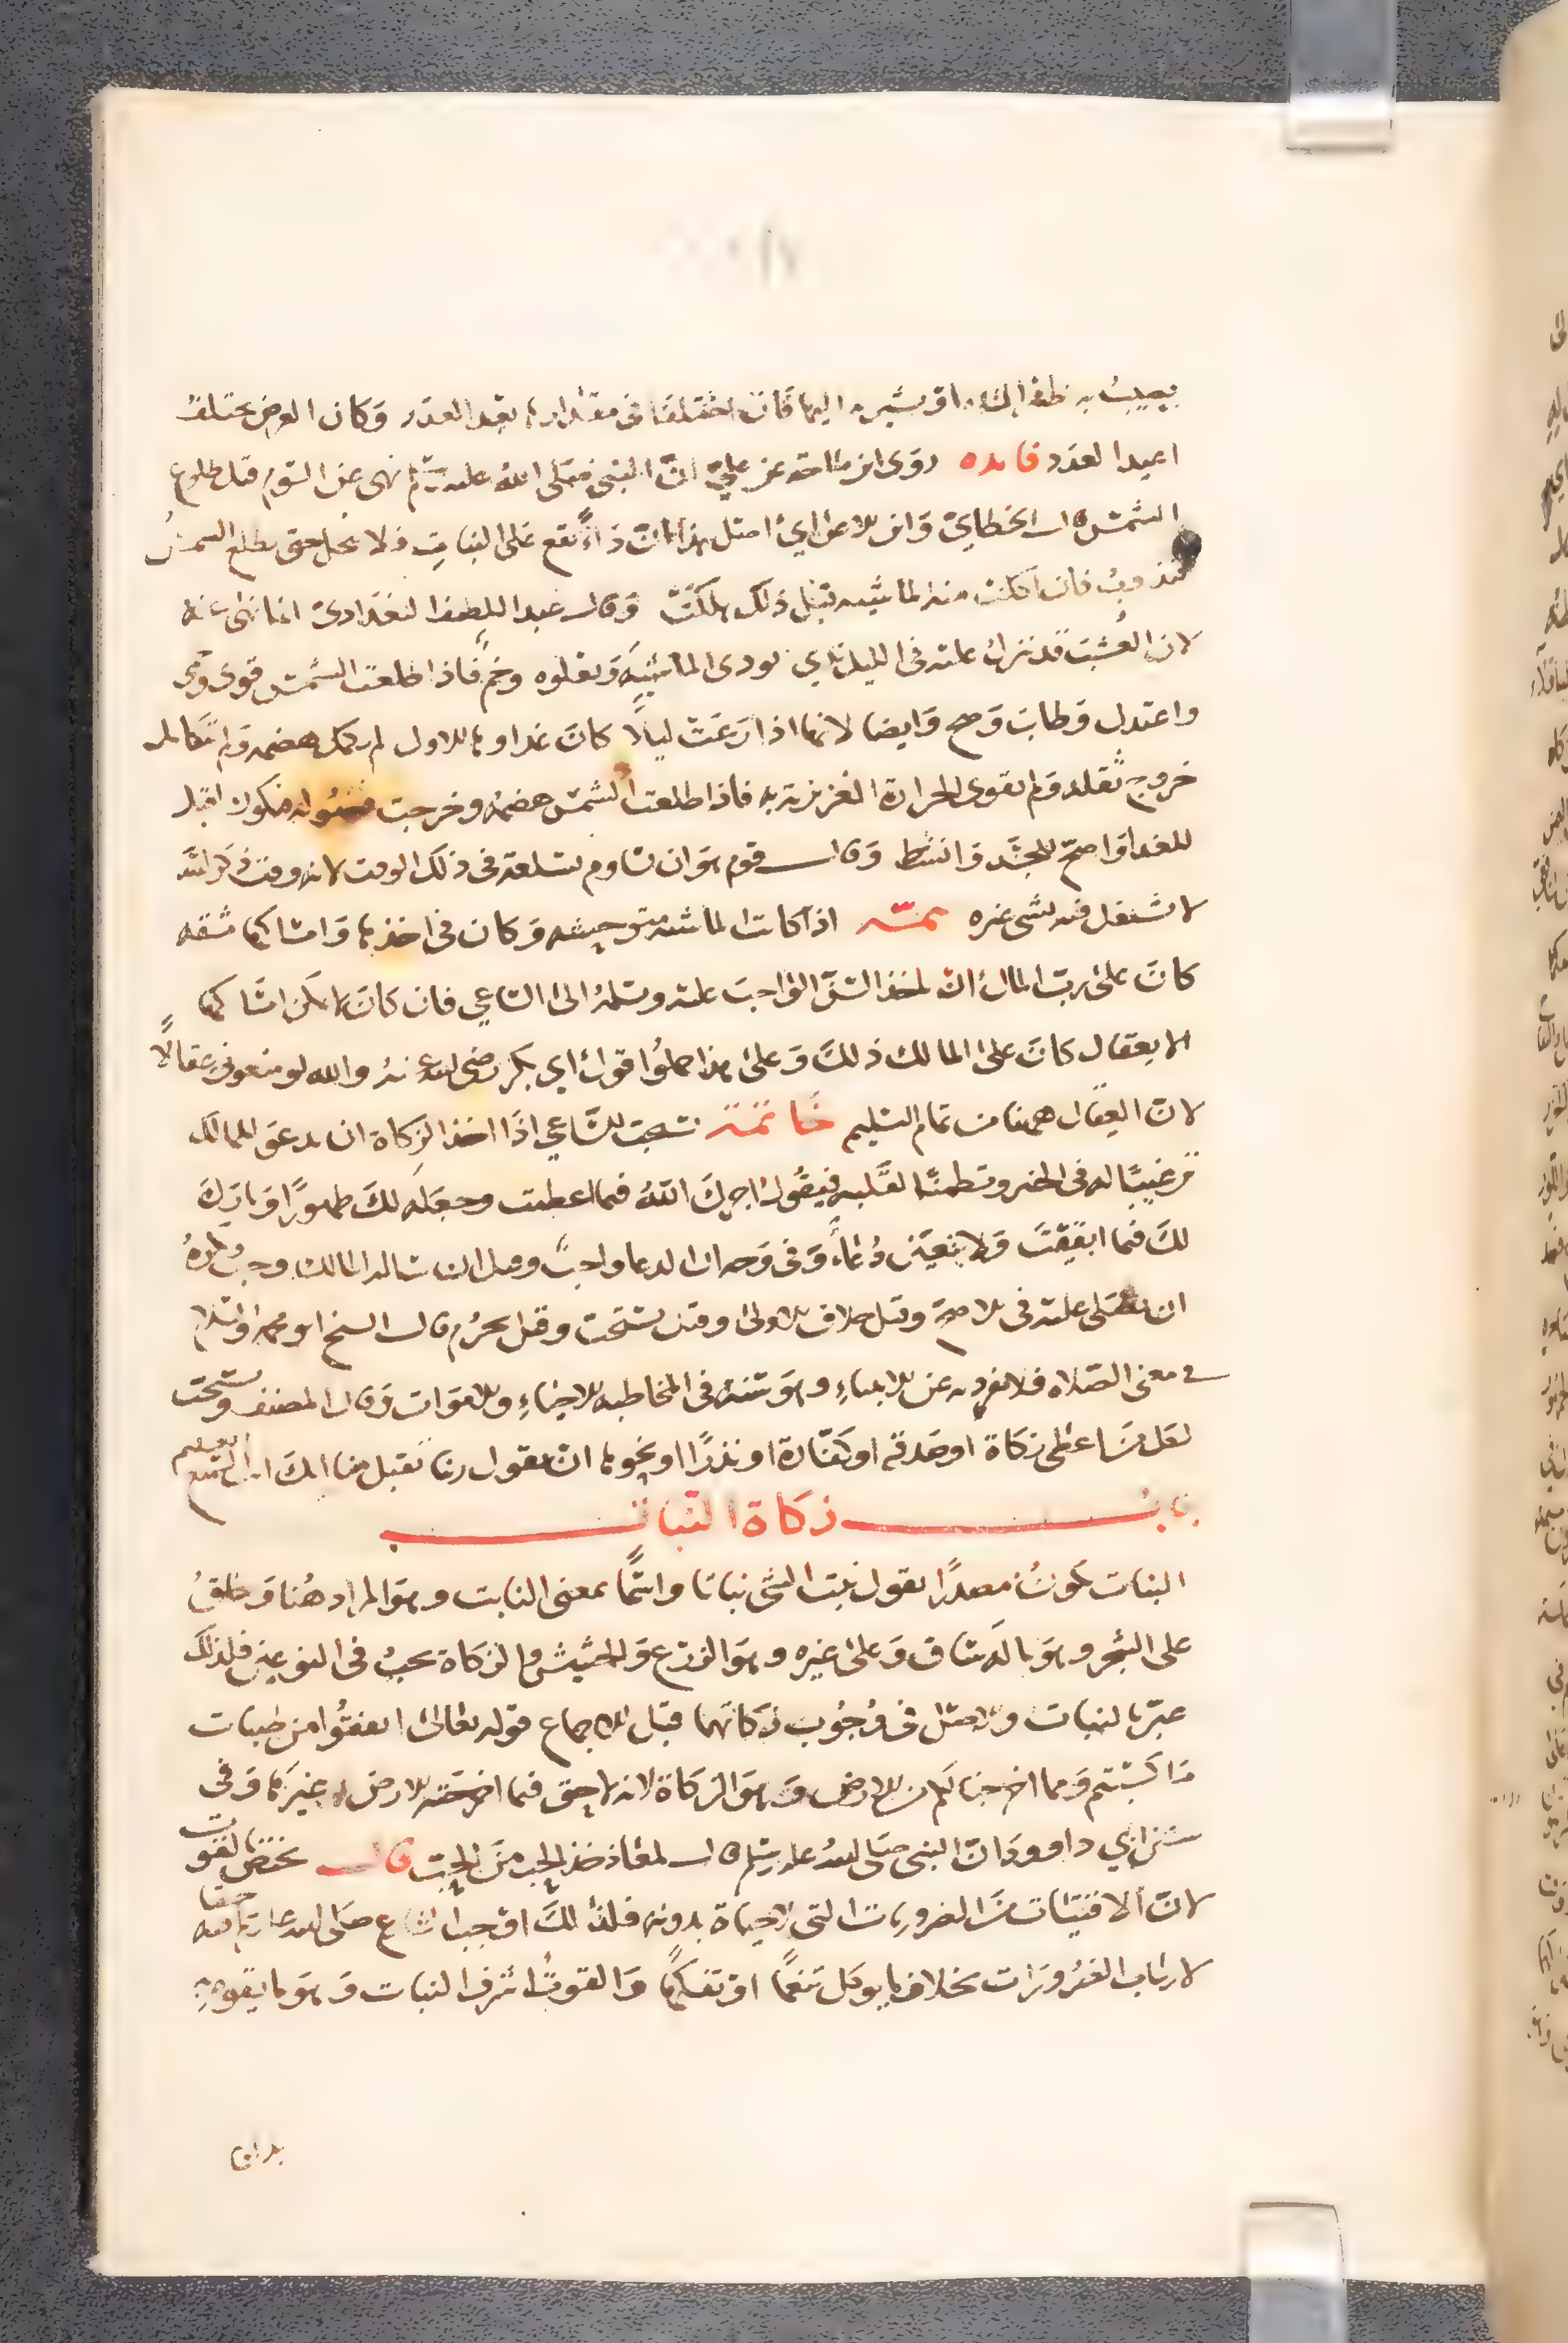 يصيب به ظهرها او يشير به اليها فان اختلفا في مقدارها بعد العدد وكان الفرض يختلف
اعيد العدد فايده روى ابن ماجه عن علي ان النبي صلى الله عليه وسلم نهى عن السوم قبل طلوع
الشمس قال الخطابي وابن الاعرابي اصل هذا ان داءً يقع على النبات فلا ينحل حتى تطلع الشمس
فيذوب فان اكلت منه الماشيه قبل ذلك هلكت وقال عبد اللطيف البغدادي انما نهى عنه
لان العشب قد نزل عليه في الليل ندي يوذي الماشية ويعلوه وخم فاذا طلعت الشمس قوي
واعتدل وطاب وصح وايضا لانها اذا رعت ليلا كان غداوها الاول لم يكمل هضمه ولم يتكامل
خروج ثقله ولم تقوى الحرارة الغريزية به فاذا طلعت الشمس هضمه وخرجت فضوله فيكون اقبل
للغدا واصح للجسد وانشط وقال قوم هو ان يساوم بسلعته في ذلك الوقت لانه وقت ذكر الله
لا يشتغل فيه بشي غيره تتمة اذا كانت الماشيه متوحشه وكان في اخذها وامساكها مشقه
كان على رب المال ان ياخذ السن الواجب عليه ويسلمه الى الساعي فان كان لا يمكن امساكها
الا بعقال كان على المالك ذلك وعلى هذا حملوا قول ابي بكر رضي الله عنه والله لو منعوني عقالًا
لان العقال ههنا من تمام التسليم خاتمة يستحب للساعي اذا اخذ الزكاة ان يدعو للمالك
ترغيبًا له في الخير وتطمينًا لقلبه فيقول اجرك الله فيما اعطيت وجعله لك طهورًا وبارك
لك فيما ابقيت ولا يتعين دعاءٌ وفي وجه ان الدعا واجب وقيل ان ساله المالك وجب ويكره
ان يصلى عليه في الاصح وقيل خلاف الاولى وقيل يستحب وقيل يحرم قال الشيخ ابو محمد والسلام
في معنى الصلاه فلا يفرد به غير الانبياء وهو سنة في المخاطبه للاحياء والاموات وقال المصنف ويستحب
لكل من اعطى زكاة او صدقة او كفارة او نذرًا او نحوها ان يقول ربنا تقبل منا انك انت السميع العليم
باب زكاة النبات
النبات يكون مصدرًا تقول نبت الشي نباتا واسمًا بمعنى النابت وهو المراد هنا وطلق
على الشجر وهو ما له ساق وعلى غيره وهو الزرع والحشيش والزكاة تجب في النوعين فلذلك
عبر بالنبات والاصل في وجوب زكاتهما قبل الاجماع قوله تعالى انفقوا من طيبات
ما كسبتم ومما اخرجنا لكم من الارض وهو الزكاة لانه لا حق فيما اخرجته الارض غيرها وفي
سنن ابي داوود ان النبي صلى الله عليه وسلم قال لمعاذ خذ الحب من الحب قال تختص بالقوت
لان الاقتيات من الضروريات التي لا حياة بدونه فلذلك اوجب الشارع صلى الله عليه وسلم منه حقا
لارباب الضرورات بخلاف ما يوكل تنعمًا او تفكهًا والقوت اشرف النبات وهو ما يقوم به
بدان